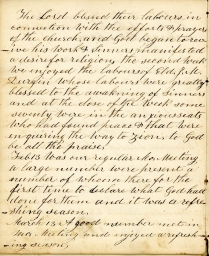 The Lord blessed their labours, in
connection with the efforts & prayers
of the church, and God began to rev
ive his work & Sinners manifested
a desire for religion, the second week
we enjoyed the labours of Eld.
whose labours were greatly
blessed to the awakning of Sinners
and at the close of the week some
seventy were in the anxious seats
who had found peace & that were
enquiring the way to Zion, to God
be all the praise.
Feb 13 was our regular Mo. Meeting
a large number were present a
number of whom there for the
first time to declare what God had
done for them and it was a refre
shing season.
March 13 A good number met in
Mo. Meeting and enjoyed a refresh-
ing season,